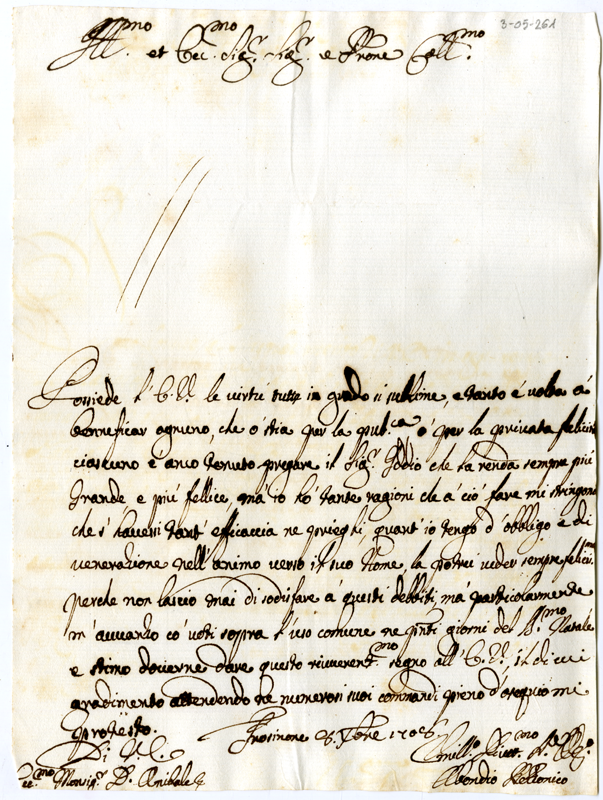 3-05-261
Ill.mo et Ecc.mo Sig.r Sig.r e Prone Coll.mo
Possiede l'E.V. le virtù tutte in grado sì sublime, e tanto è volta à
benneficar ognuno, che ò sia per la pub.ca ò per la privata felicità
ciascuno è anco tenuto pregare il Sig.r Iddio che la renda sempre più
Grande e più fellice, mà io hò tante ragioni che à ciò fare mi stringono
che s'havessi tant'efficaccia ne prieghi, quant'io tengo d'obbligo e di
venerazione nell'animo verso il suo Nome, la potrei veder sempre feliciss.ma
perche non lascio mai di sodisfare à questi debbiti, mà particolarmente
m'avvanzo co' voti sopra l'uso comune ne giorni del S.mo Natale
e stimo doverne dare questo riverent.mo segno all'E.V., il di cui
gradimento attendendo ne numerosi suoi commandi pieno d'ossequio mi
protesto.
Di V.E.
Frosinone
Monsig.r D. Annibale
Abondio Rezzonico